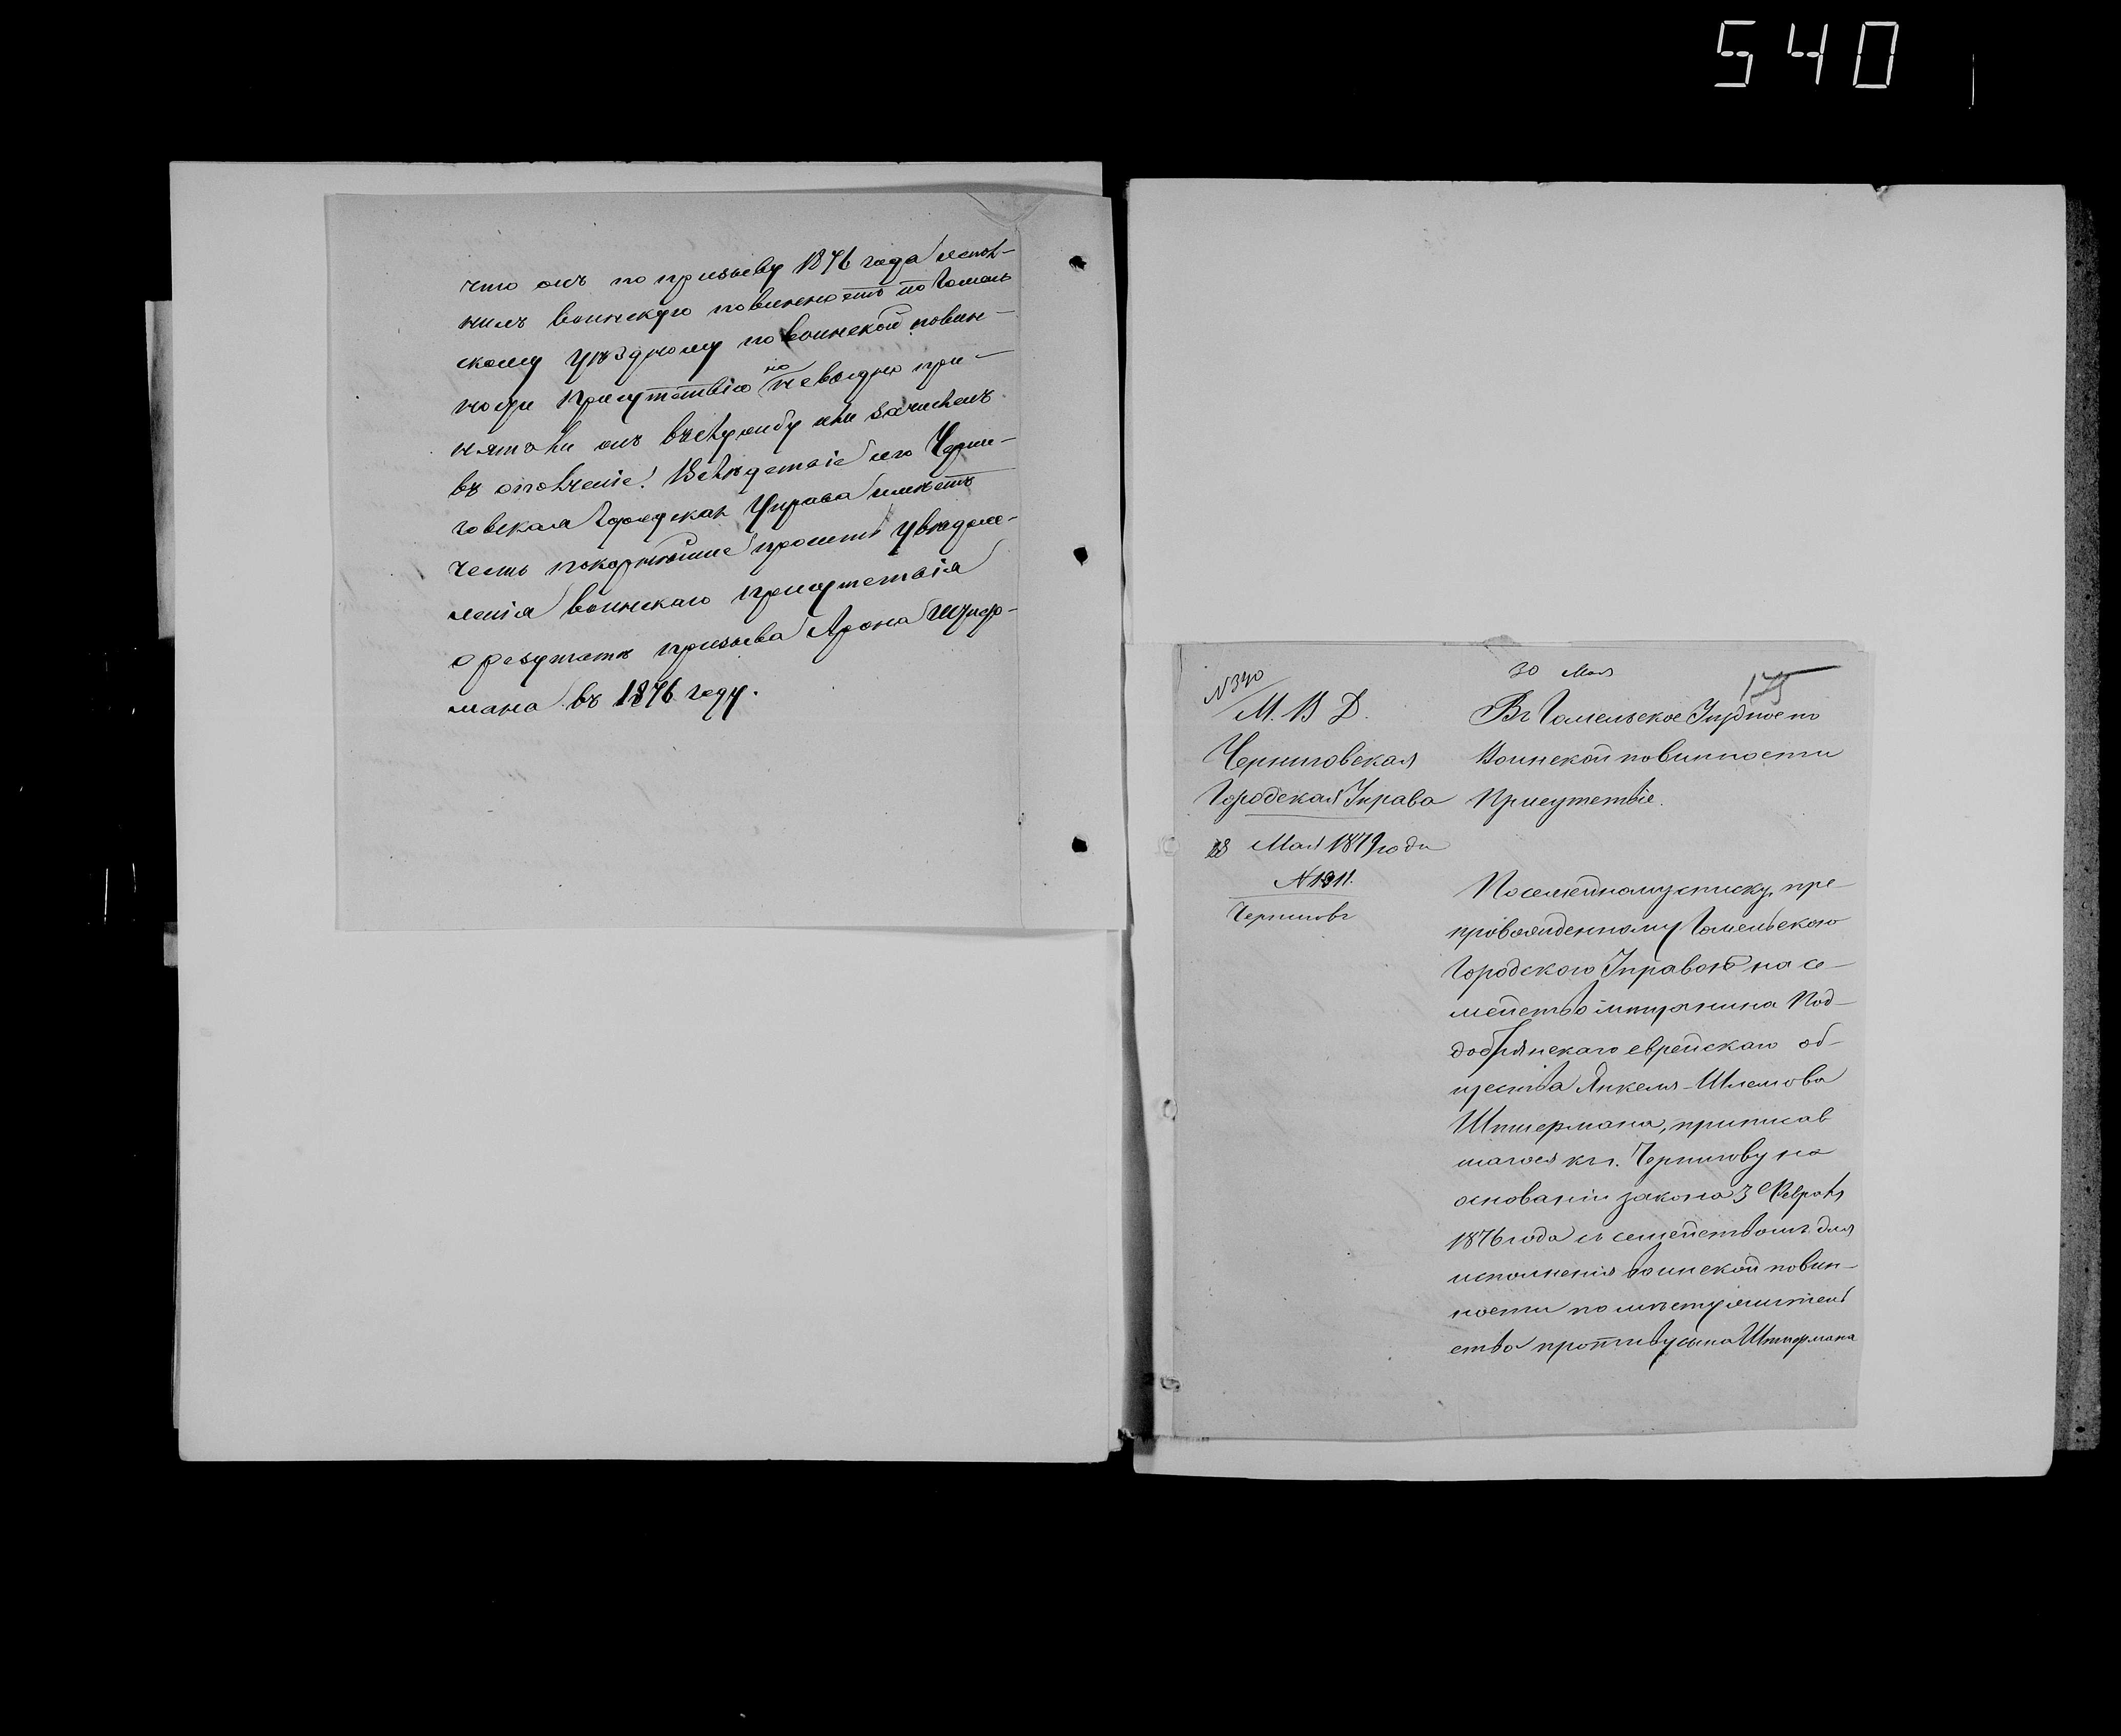 540
что онъ по призыву 1876 года испол-
нилъ воинскую повинность по Гомель
скому уѣздному по воинской повин-
ности присутствію но невидно при-
нятъ ли онъ въ службу или зачисленъ
въ ополченіе. Вслѣдствіе сего Черни-
говская Городская Управа имѣетъ
честь покорнѣйше просить увѣдом-
ленія воинскаго присутствія
о результатѣ призыва Арона Штиф-
мана въ 1876 году.
N 340
30 Мая
175
М. В Д.
Черниговская
Городская Управа
28 Мая 1879 года
N 1911.
Черниговъ
Въ Гомельское Уѣздное по
Воинской повинности
Присутствіе.
По семейному списку, пре-
провожденному Гомельскою
Городскою Управою на се-
мейство мѣщанина Под-
добрянскаго еврейскаго об-
щества Янкеля-Шлемова
приписав
шагося къ г. Чернигову на
основаніи закона 3 Февраля
1876 года съ семействомъ для
исполненія воинской повин-
ности по мѣсту жительства
ства противу сына